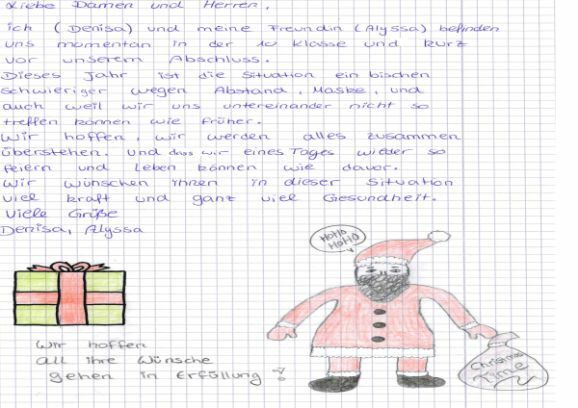 Liebe Damen und Herren,
ich (Denisa) und meine Freundin (Alyssa) befinden
uns momentan in der 10 Klasse und kurz
vor unserem Abschluss.
Dieses Jahr ist die Situation ein bischen
schwieriger wegen Abstand, Maske, und
auch weil wir uns untereinander nicht so
treffen können wie früher.
Wir hoffen, wir werden alles zusammen
überstehen. und dass wir eines Tages wieder so
feiern und Leben können wie davor.
Wir wünschen ihnen in dieser Situation
viel kraft und ganz viel Gesundheit.
Viele Grüße
Denisa, Alyssa
HoHo
HoHo
Wir hoffen
all ihre Wünsche
gehen in Erfüllung!
Christmas
Time